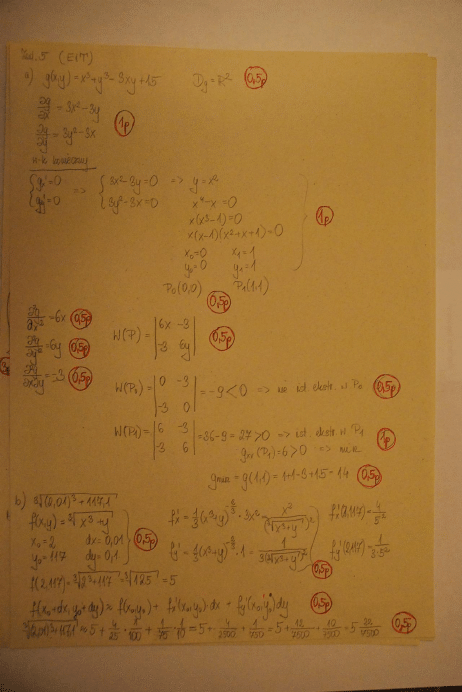 Zad. 5 (EiT)
a) g(x,y) = x³+y³-3xy+15 Dg = R² 0,5p
∂g/∂x = 3x²-3y
∂g/∂y = 3y²-3x 1p
w-k konieczny
{gx'=0 => {3x²-3y=0 => y=x²
{gy'=0 {3y²-3x=0 x⁴-x=0
x(x³-1)=0
x(x-1)(x²+x+1)=0 1p
x₀=0 x₁=1
y₀=0 y₁=1
P₀(0,0) P₁(1,1)
0,5p
∂²g/∂x² = 6x 0,5p W(P) = |6x -3|
∂²g/∂y² = 6y 0,5p |-3 6y| 0,5p
∂²g/∂x∂y = -3 0,5p
W(P₀) = |0 -3| = -9 < 0 => nie ist. ekstr. w P₀ 0,5p
|-3 0|
W(P₁) = |6 -3| = 36-9 = 27 > 0 => ist. ekstr. w P₁
|-3 6| gxx(P₁) = 6 > 0 => min 1p
gmin = g(1,1) = 1+1-3+15 = 14 0,5p
b) ∛((2,01)³+117,1)
f(x,y) = ∛(x³+y) fx' = 1/3(x³+y)^(-2/3)·3x² = x²/(∛(x³+y))² fx'(2,117) = 4/5²
x₀=2 dx=0,01
y₀=117 dy=0,1 0,5p fy' = 1/3(x³+y)^(-2/3)·1 = 1/(3(∛(x³+y))²) fy'(2,117) = 1/(3·5²)
f(2,117) = ∛(2³+117) = ∛125 = 5 0,5p
f(x₀+dx, y₀+dy) ≈ f(x₀,y₀) + fx'(x₀,y₀)·dx + fy'(x₀,y₀)dy 0,5p
∛((2,01)³+117,1) ≈ 5 + 4/25·1/100 + 1/75·1/10 = 5 + 4/2500 + 1/750 = 5 + 12/7500 + 10/7500 = 5 22/7500 0,5p